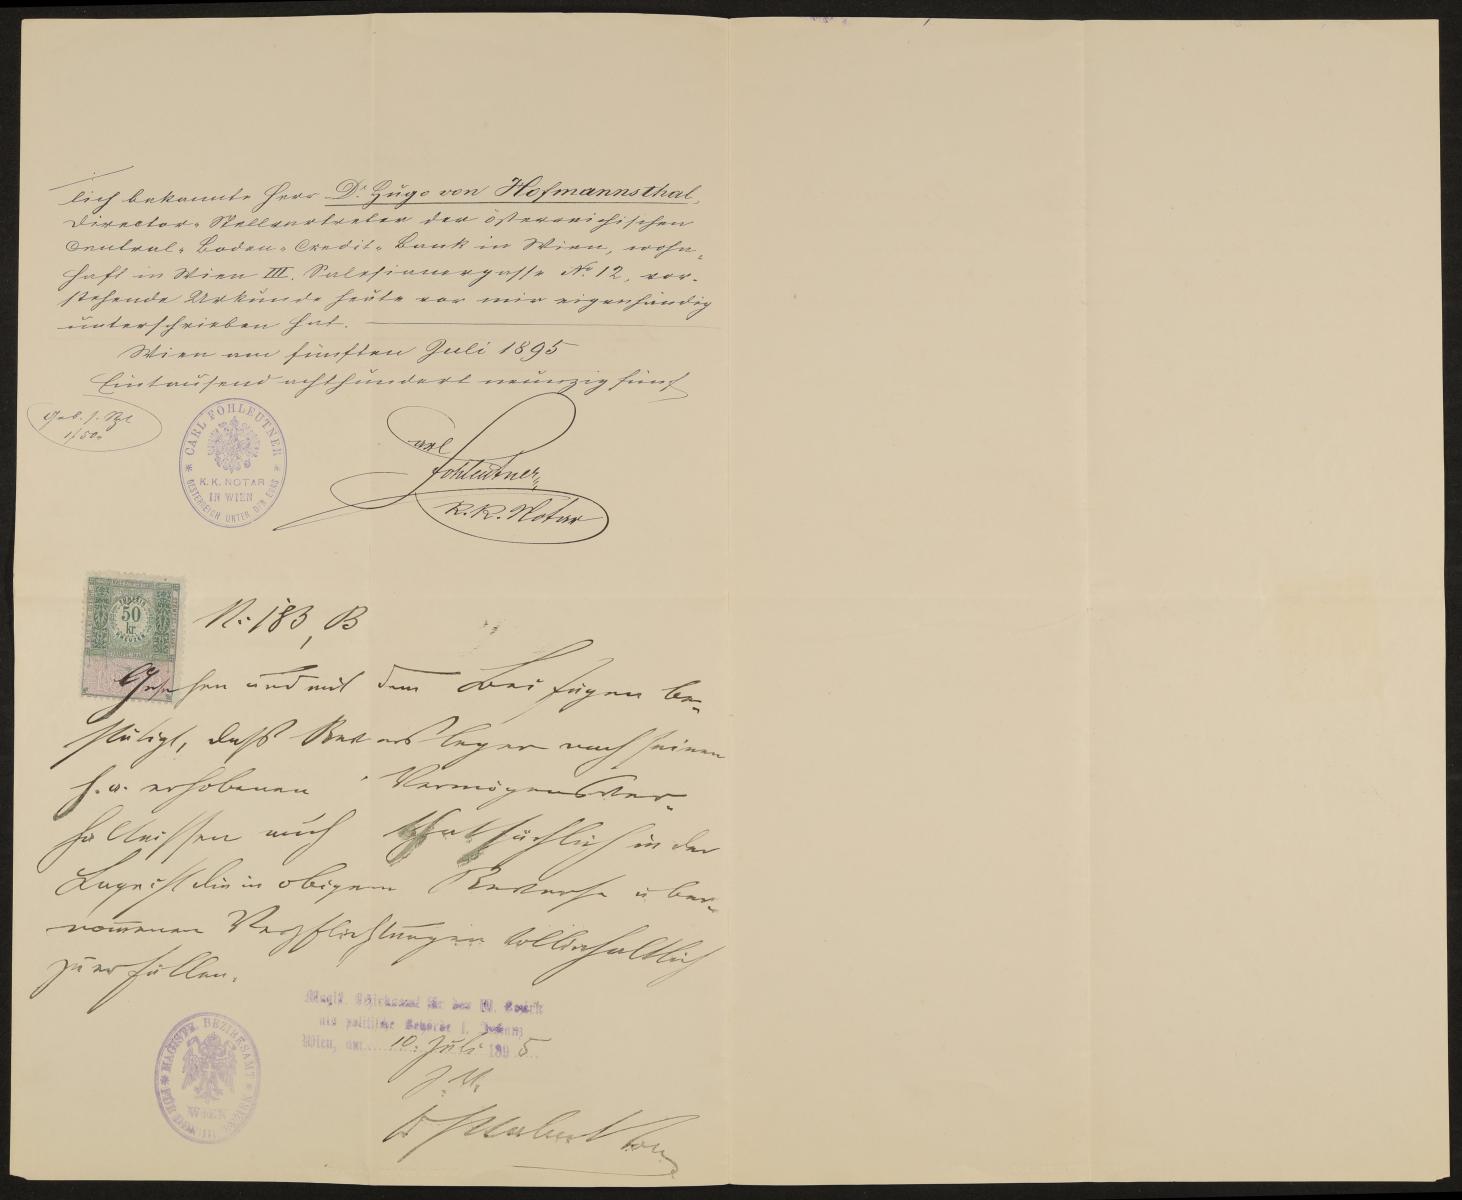 lich bekannte Herr Dr. Hugo von Hofmannsthal,
Director-Stellvertreter der österreichischen
Central-Boden-Credit-Bank in Wien, wohn-
haft in Wien III. Salesianergasse No. 12, vor-
stehende Urkunde heute vor mir eigenhändig
unterschrieben hat.
Wien am fünften Juli 1895
Eintausend achthundert neunzig fünf
Geb. s. Stpl
1f 50x
CARL FOHLEUTNER
K.K. NOTAR
IN WIEN
OESTERREICH UNTER DER ENNS
Carl
Fohleutner
K.K. Notar
50
kr.
N: 183, B
Gesehen und mit dem Beifügen be-
stätigt, daß Reversleger nach seinen
h. a. erhobenen Vermögensver-
hältnissen auch thatsächlich in der
Lage ist die in obigem Reverse über-
nommenen Verpflichtungen vollinhaltlich
zu erfüllen.
Magist. Bezirksamt für den III. Bezirk
als politische Behörde I. Instanz
Wien, am 10. Juli 1895
MAGISTR. BEZIRKSAMT
FÜR DEN III. BEZIRK
WIEN